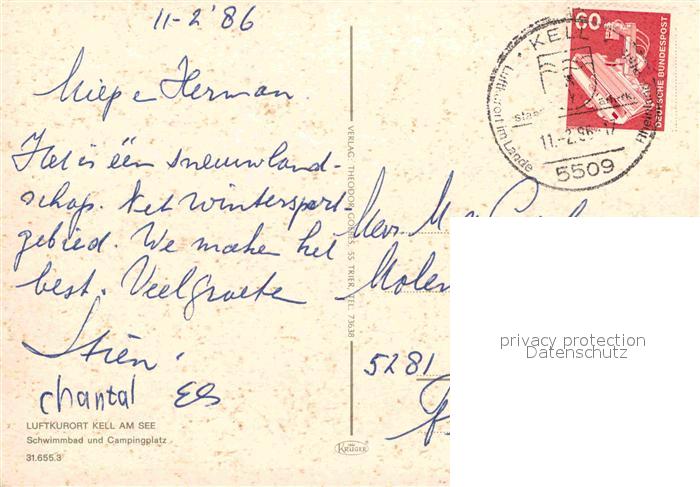 11-2'86
Miep e Herman
Het is één sneeuwland-
schap. Net wintersport
gebied. We maken het
best. Veel groeten
Stien.
chantal Els
LUFTKURORT KELL AM SEE
Schwimmbad und Campingplatz
31.655.3
VERLAG: THEODOR GORGES, 55 TRIER, TEL. 73638
KRÜGER
60
DEUTSCHE BUNDESPOST
KELL
Luftkurort im Lande
11.-2.86-17
5509
Mevr. M.
Molen
5281
privacy protection
Datenschutz